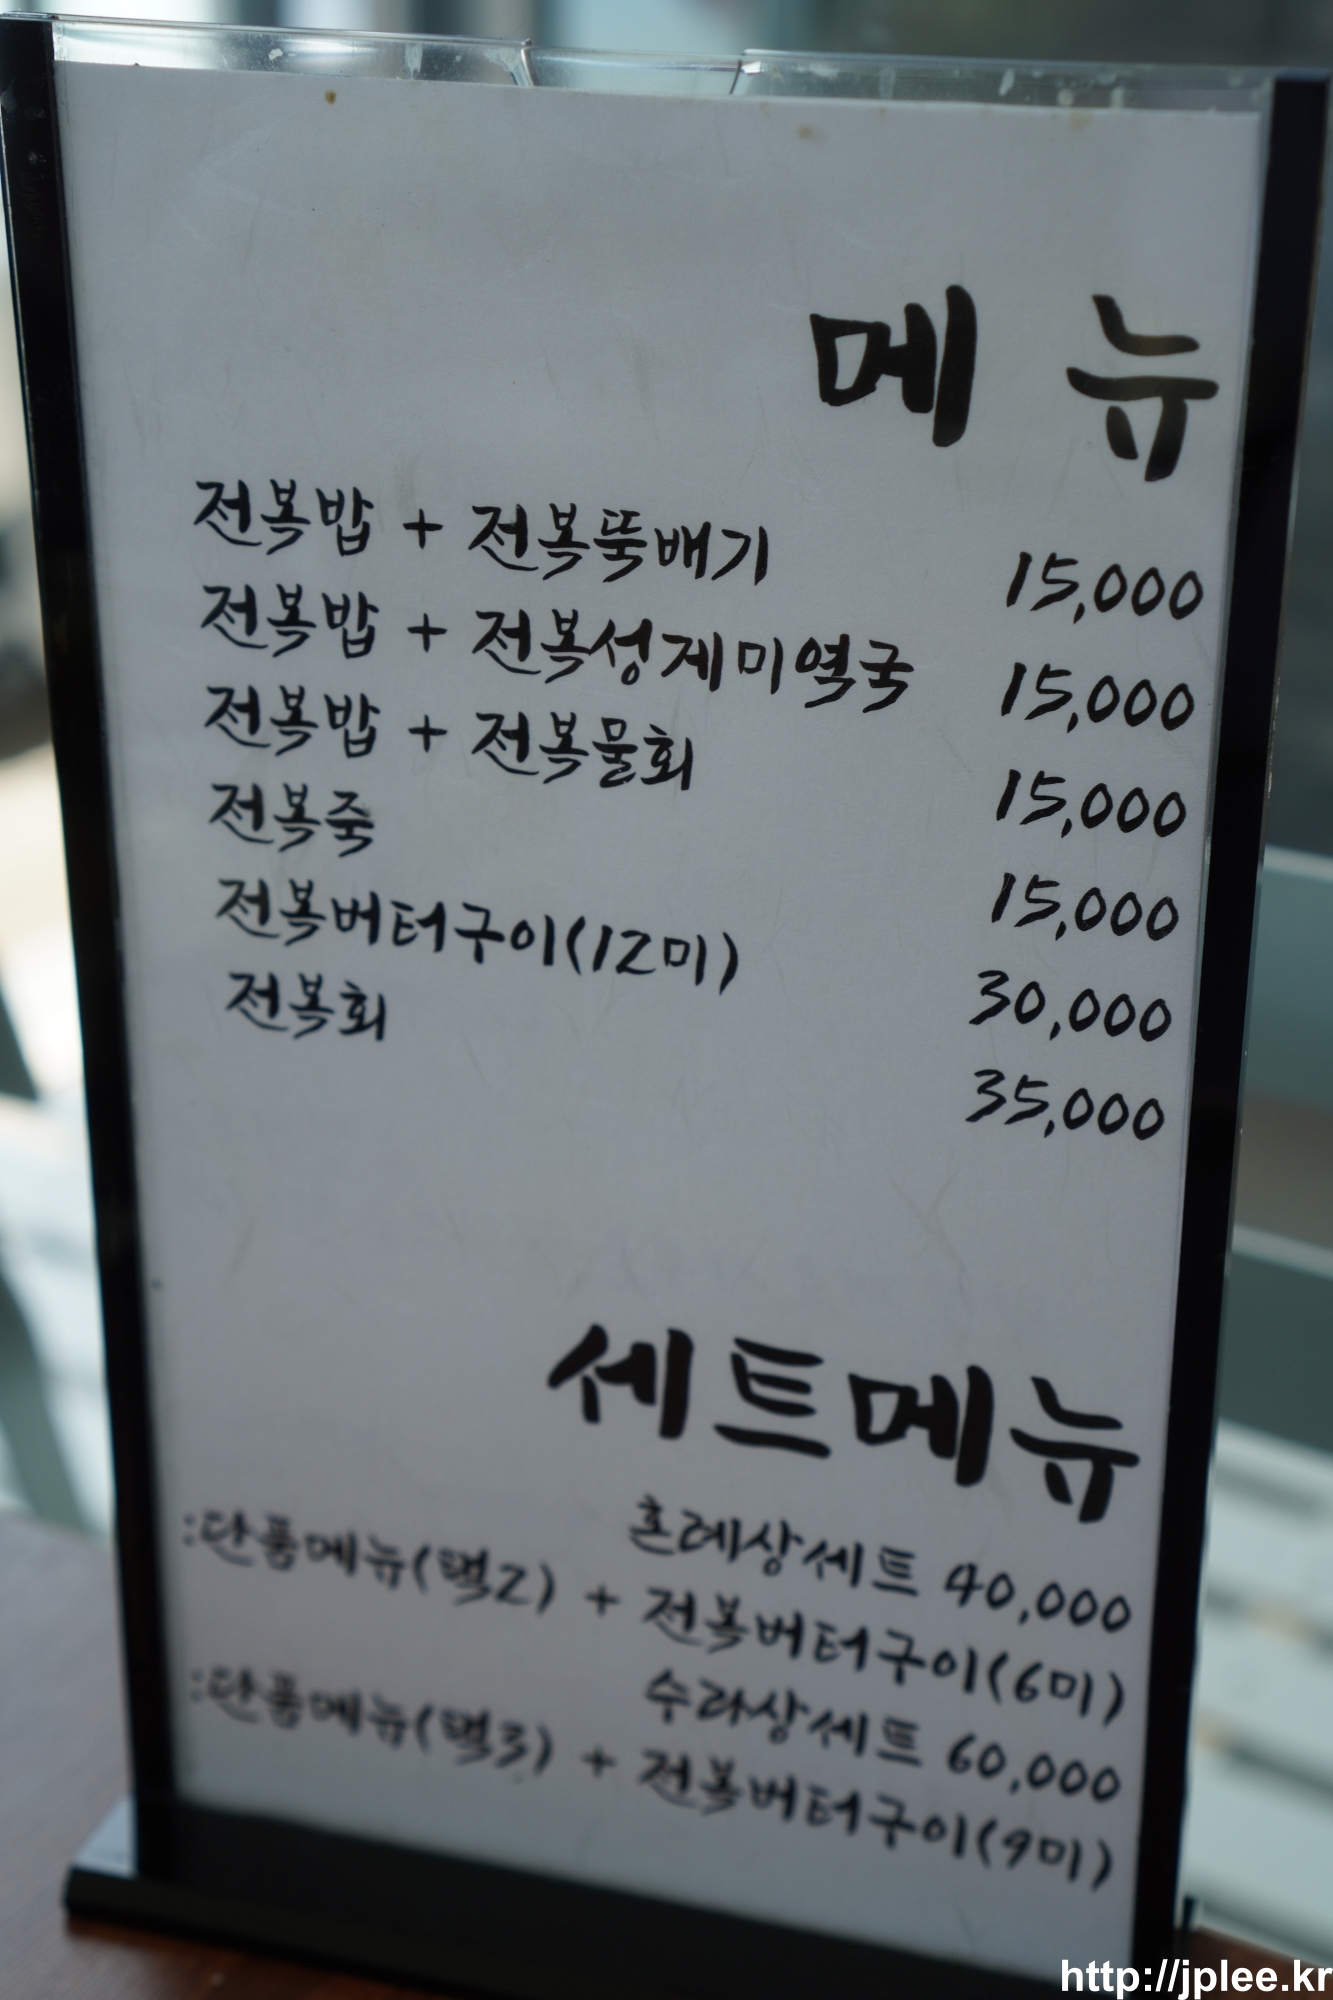 메 뉴
전복밥 + 전복뚝배기 15,000
전복밥 + 전복성게미역국 15,000
전복밥 + 전복물회 15,000
전복죽 15,000
전복버터구이(12미) 30,000
전복회 35,000
세트메뉴
혼례상세트 40,000
:단품메뉴(택2) + 전복버터구이(6미)
수라상세트 60,000
:단품메뉴(택3) + 전복버터구이(9미)
http://jplee.kr